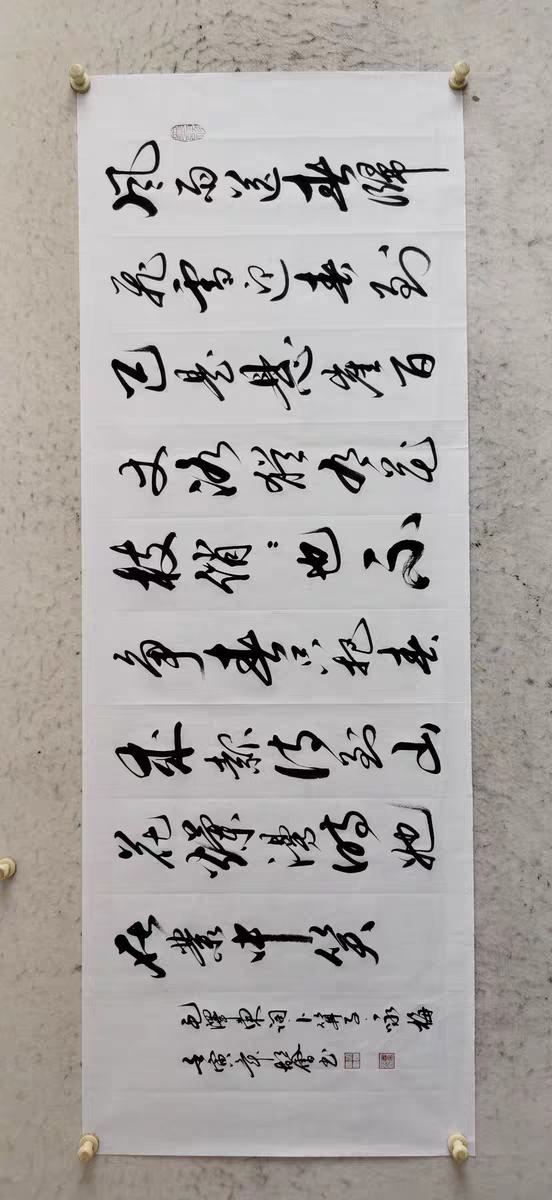 風雨送春歸
飛雪迎春到
已是懸崖百
丈冰猶有花
枝俏〻也不
爭春只把春
來報待到山
花爛漫時她
在叢中笑
毛澤東詞卜算子詠梅
壬寅年